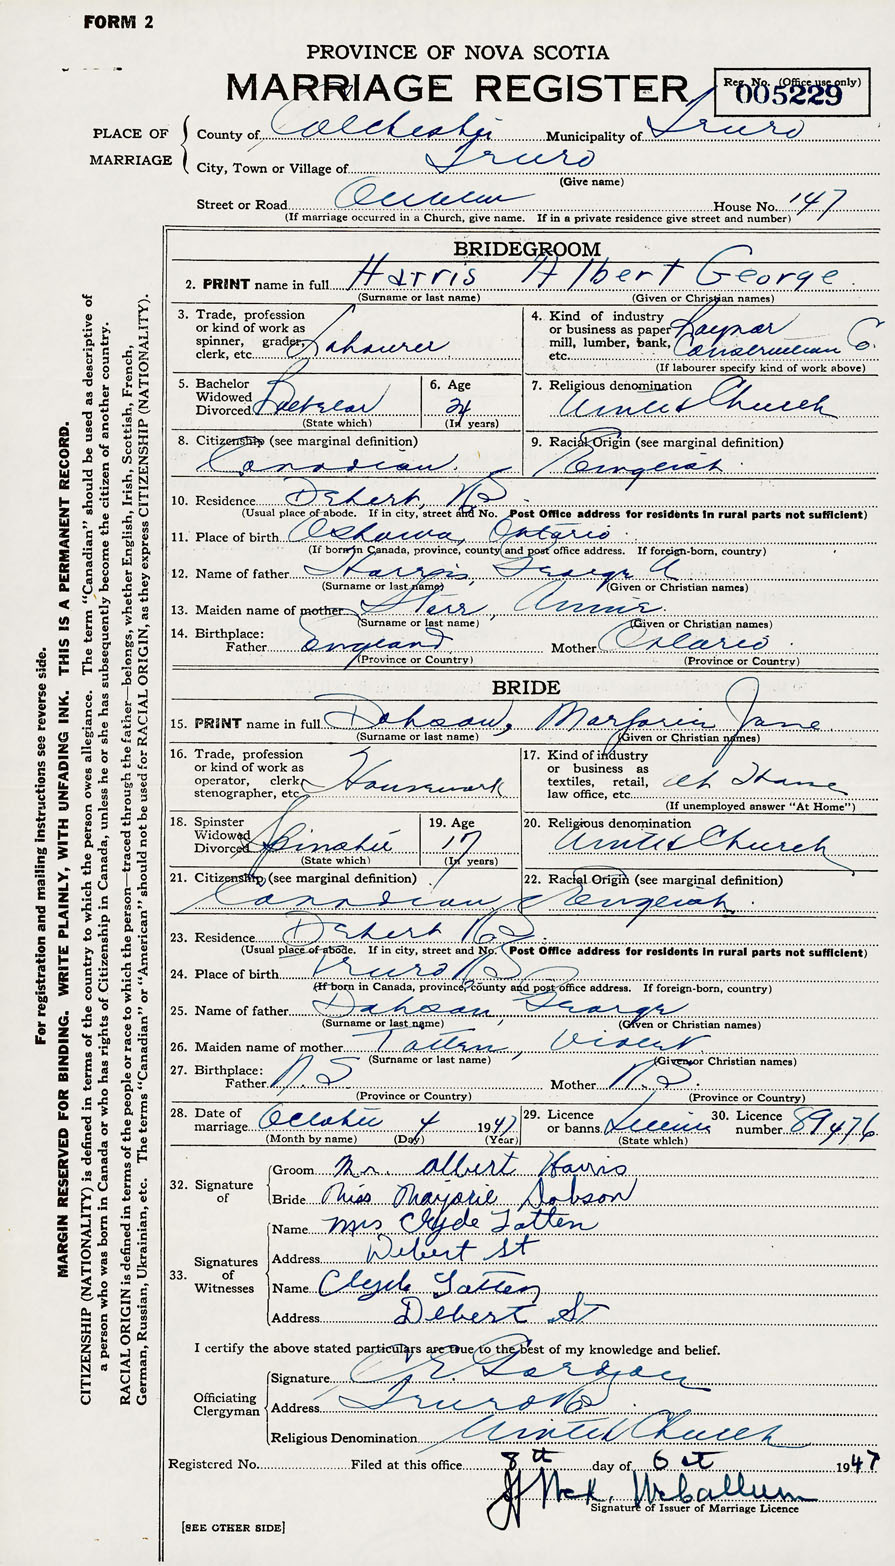 FORM 2
PROVINCE OF NOVA SCOTIA
MARRIAGE REGISTER
Reg. No. (Office use only)
005229
PLACE OF MARRIAGE
County of Colchester Municipality of Truro
City, Town or Village of Truro
(Give name)
Street or Road Queen House No. 147
(If marriage occurred in a Church, give name. If in a private residence give street and number)
BRIDEGROOM
2. PRINT name in full Harris Albert George
(Surname or last name) (Given or Christian names)
3. Trade, profession or kind of work as spinner, grader, clerk, etc. Labourer
4. Kind of industry or business as paper mill, lumber, bank, etc. Construction Co.
(If labourer specify kind of work above)
5. Bachelor Widowed Divorced Bachelor
(State which)
6. Age 21
(In years)
7. Religious denomination United Church
8. Citizenship (see marginal definition) Canadian
9. Racial Origin (see marginal definition) English
10. Residence Debert, NS
(Usual place of abode. If in city, street and No. Post Office address for residents in rural parts not sufficient)
11. Place of birth Oshawa, Ontario
(If born in Canada, province, county and post office address. If foreign-born, country)
12. Name of father Harris, George A
(Surname or last name) (Given or Christian names)
13. Maiden name of mother Starr, Annie
(Surname or last name) (Given or Christian names)
14. Birthplace:
Father England Mother Ontario
(Province or Country) (Province or Country)
BRIDE
15. PRINT name in full Dobson, Marjorie Jane
(Surname or last name) (Given or Christian names)
16. Trade, profession or kind of work as operator, clerk, stenographer, etc. Housework
17. Kind of industry or business as textiles, retail, law office, etc. at Home
(If unemployed answer "At Home")
18. Spinster Widowed Divorced Spinster
(State which)
19. Age 17
(In years)
20. Religious denomination United Church
21. Citizenship (see marginal definition) Canadian
22. Racial Origin (see marginal definition) English
23. Residence Debert NS
(Usual place of abode. If in city, street and No. Post Office address for residents in rural parts not sufficient)
24. Place of birth Truro NS
(If born in Canada, province, county and post office address. If foreign-born, country)
25. Name of father Dobson, George
(Surname or last name) (Given or Christian names)
26. Maiden name of mother Totten, Violet
(Surname or last name) (Given or Christian names)
27. Birthplace:
Father N.S Mother N.S.
(Province or Country) (Province or Country)
28. Date of marriage October 4 1947
(Month by name) (Day) (Year)
29. Licence or banns License
(State which)
30. Licence number 89476
32. Signature of
Groom Mr. Albert Harris
Bride Miss Marjorie Dobson
33. Signatures of Witnesses
Name Mrs Clyde Totten
Address Debert St
Name Clyde Totten
Address Debert St
I certify the above stated particulars are true to the best of my knowledge and belief.
Officiating Clergyman
Signature
Address Truro NS
Religious Denomination United Church
Registered No. Filed at this office 8th day of Oct 1947
McCallum
Signature of Issuer of Marriage Licence
[SEE OTHER SIDE]
For registration and mailing instructions see reverse side.
MARGIN RESERVED FOR BINDING. WRITE PLAINLY, WITH UNFADING INK. THIS IS A PERMANENT RECORD.
CITIZENSHIP (NATIONALITY) is defined in terms of the country to which the person owes allegiance. The term "Canadian" should be used as descriptive of
a person who was born in Canada or who has rights of Citizenship in Canada, unless he or she has subsequently become the citizen of another country.
RACIAL ORIGIN is defined in terms of the people or race to which the person—traced through the father—belongs, whether English, Irish, Scottish, French,
German, Russian, Ukrainian, etc. The terms "Canadian" or "American" should not be used for RACIAL ORIGIN, as they express CITIZENSHIP (NATIONALITY).